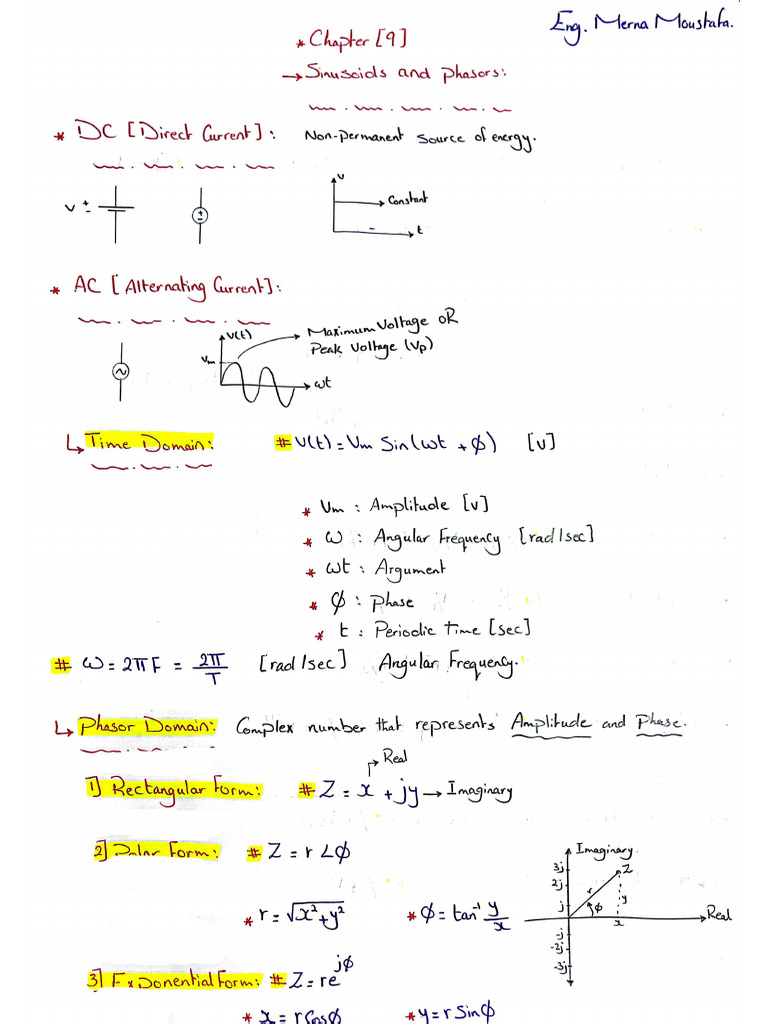 Eng. Merna Moustafa.
* Chapter [9]
→ Sinusoids and phasors:
* DC [Direct Current]: Non-permanent source of energy.
v ±
v
Constant
t
* AC [Alternating Current]:
V(t)
Vm
Maximum Voltage OR
Peak Voltage (Vp)
ωt
↳ Time Domain: # V(t) = Vm Sin(ωt + φ) [v]
* Vm : Amplitude [v]
* ω : Angular Frequency [rad/sec]
* ωt : Argument
* φ : Phase
* t : Periodic Time [sec]
# ω = 2πF = 2π/T [rad/sec] Angular Frequency.
↳ Phasor Domain: Complex number that represents Amplitude and Phase.
Real
1] Rectangular Form: # Z = x + jy → Imaginary
2] Polar Form: # Z = r∠φ
* r = √x²+y² * φ = tan⁻¹ y/x
Imaginary
3j
2j
j
-j
-2j
-3j
Z
r
y
φ
x
Real
3] Exponential Form: # Z = re^jφ
* x = r Cosφ * y = r Sinφ